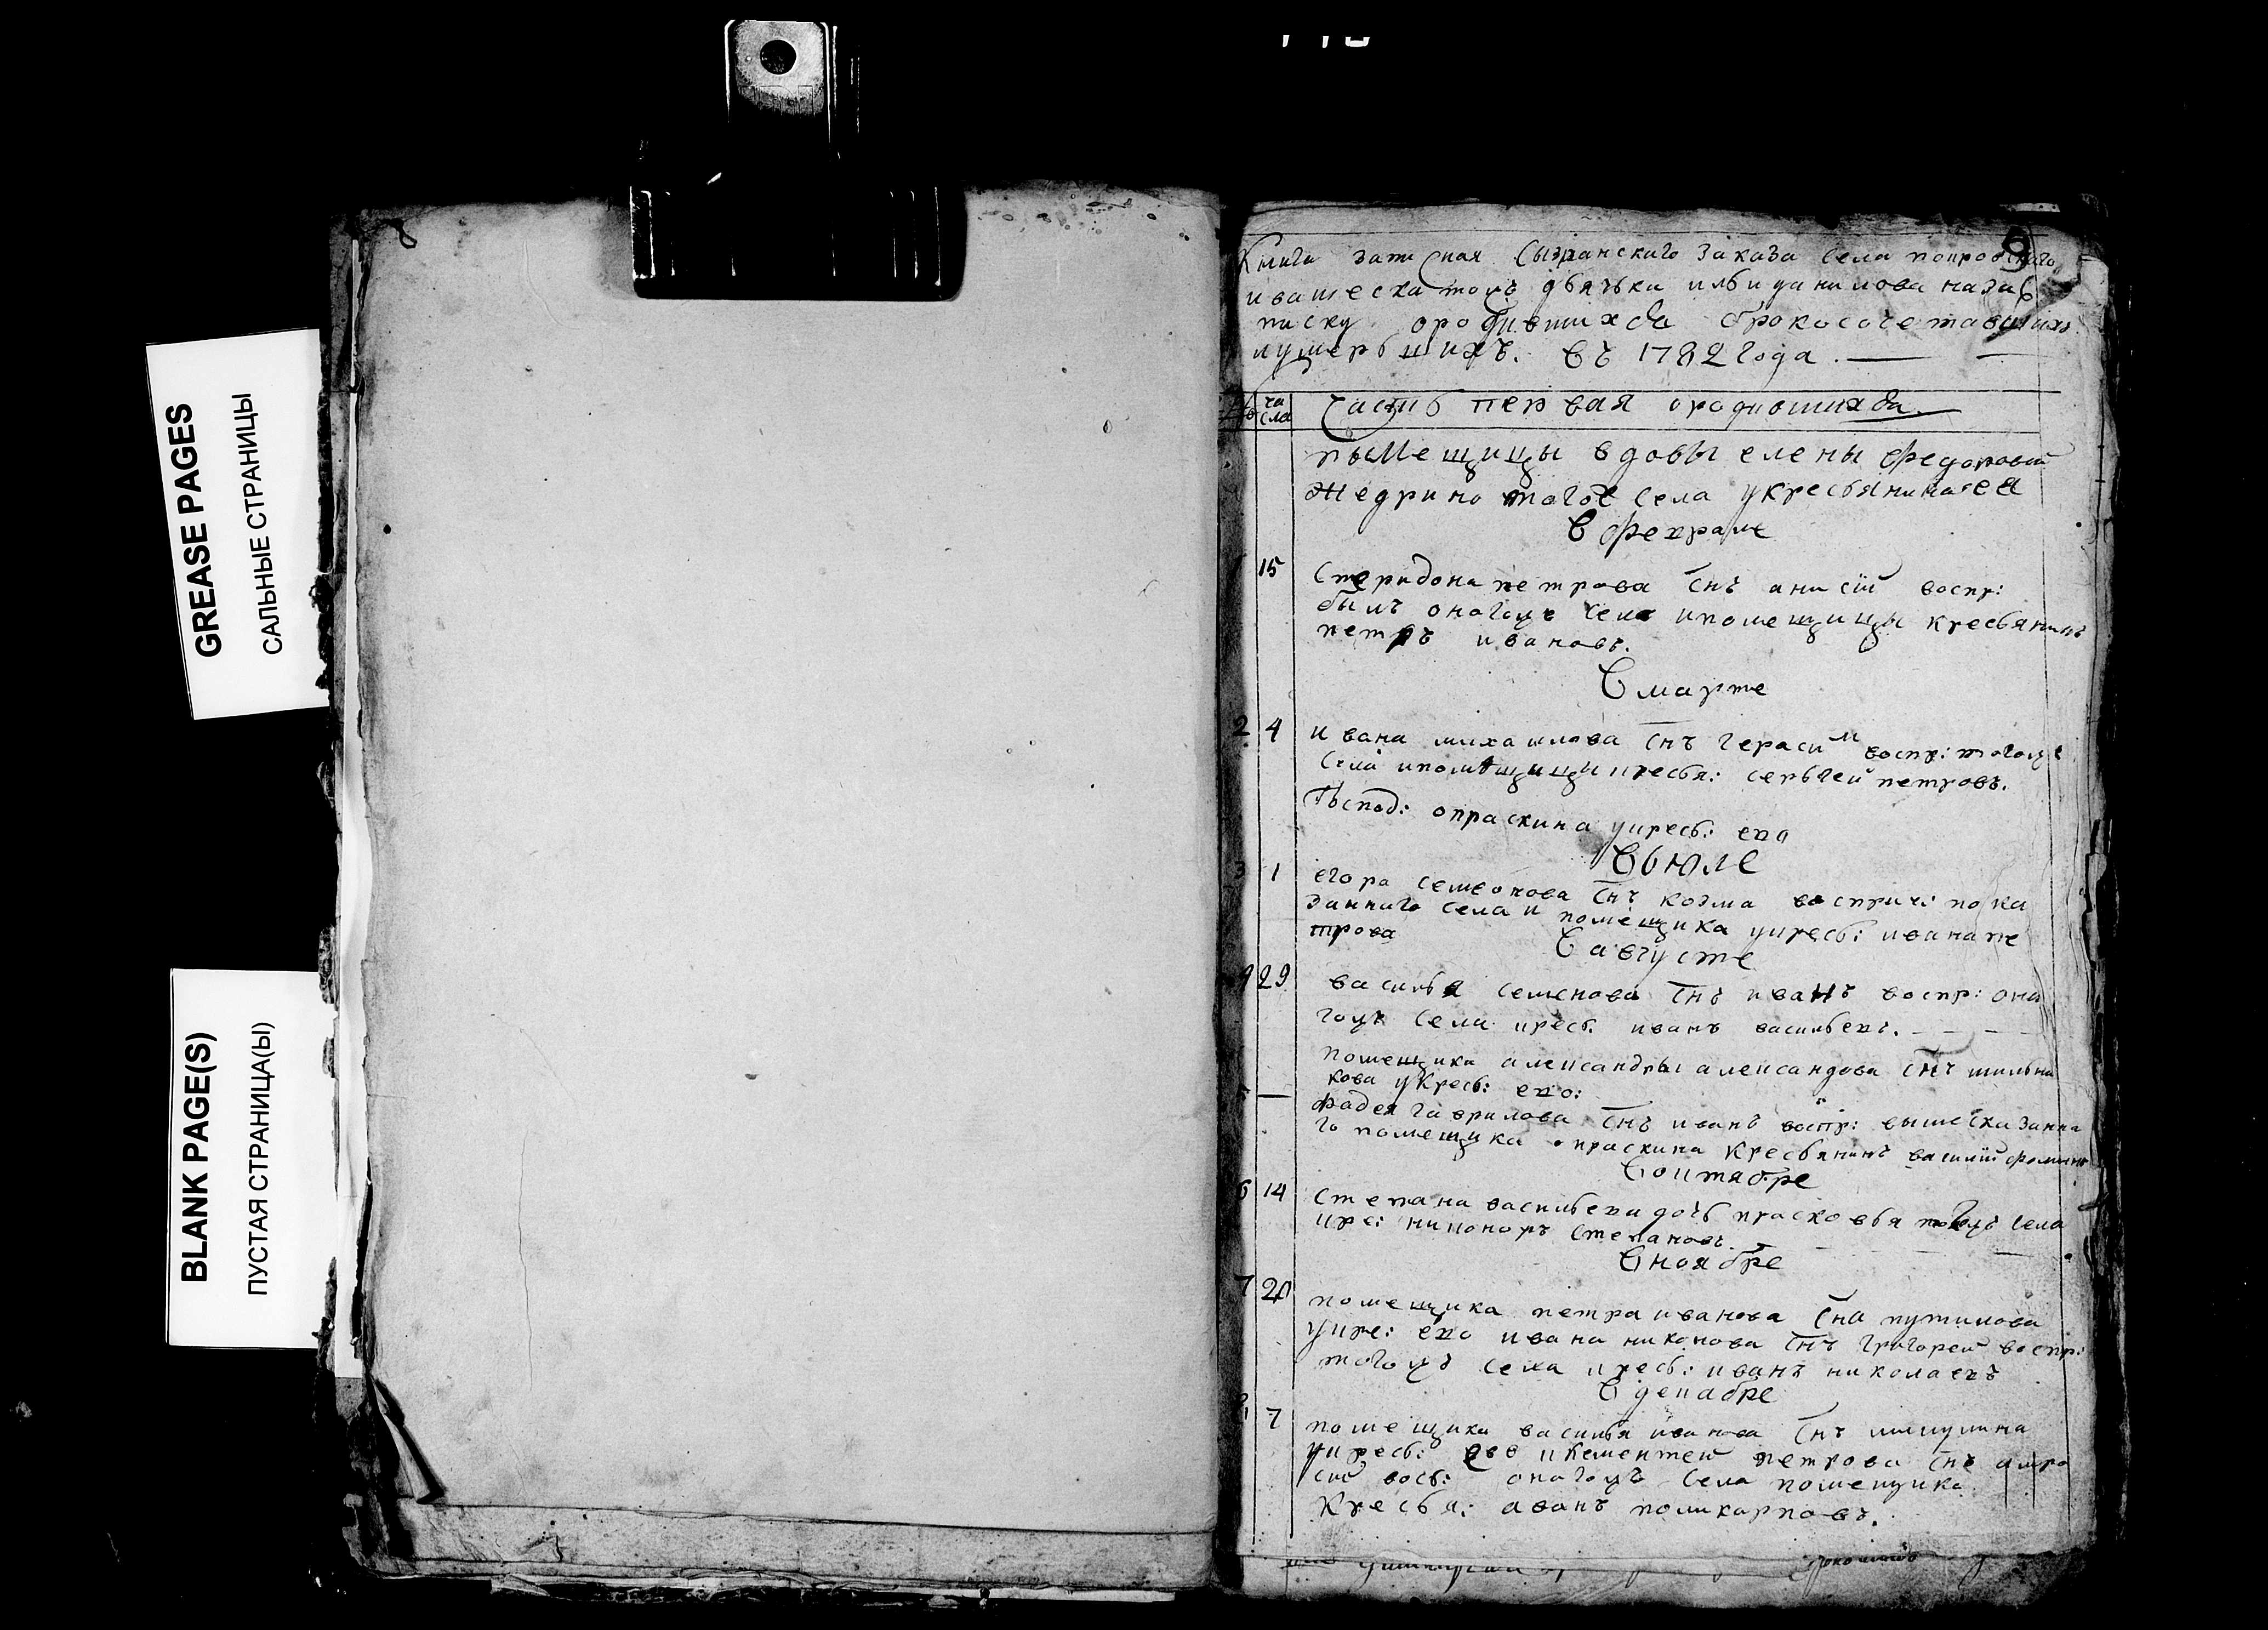 GREASE PAGES
САЛЬНЫЕ СТРАНИЦЫ
BLANK PAGE(S)
ПУСТАЯ СТРАНИЦА(Ы)
Книга записная Сызранскаго заказа села покровскаго
ивашеска тожъ дьячка данилова
писку ородившихся бракосочетавшихъ
иумершихъ. въ 1782 года.
числа Часть первая ородившихся
помещицы вдовы елены федоровой
села укресьянина ея
в феврале
15 Спиридона петрова снъ анисий воспр:
былъ оногожъ села ипомещицы кресьянинъ
петръ ивановъ.
в марте
2 4 ивана михаилова снъ герасим воспр: тогожъ
села ипомещицы кресья: сергей петровъ.
Господ: опраскина укресь: ево
в июле
3 1 егора семенова снъ козма восприч: пока
занного села и помещика укресь: ивана пе
трова
в августе
4 29 василья семенова снъ иванъ воспр: оно
гожъ села кресь. иванъ васильевъ.
помещика александры александрова снъ
укресь: ево:
5 — фадея гаврилова снъ иванъ воспр: вышесказанна
го помещика опраскина кресьянинъ василий
в октябре
6 14 степана васильева дочь прасковья тогожъ села
кре: никоноръ степановъ.
в ноябре
7 20 помещика петра иванова сна путилова
укре: ево ивана никонова снъ григорей воспр:
тогожъ села кресь: иванъ николаевъ
в декабре
8 7 помещика василья иванова снъ
укресь: ево клементей петрова снъ амро
сий вось: оногожъ села помещика
кресья: иванъ поликарповъ.